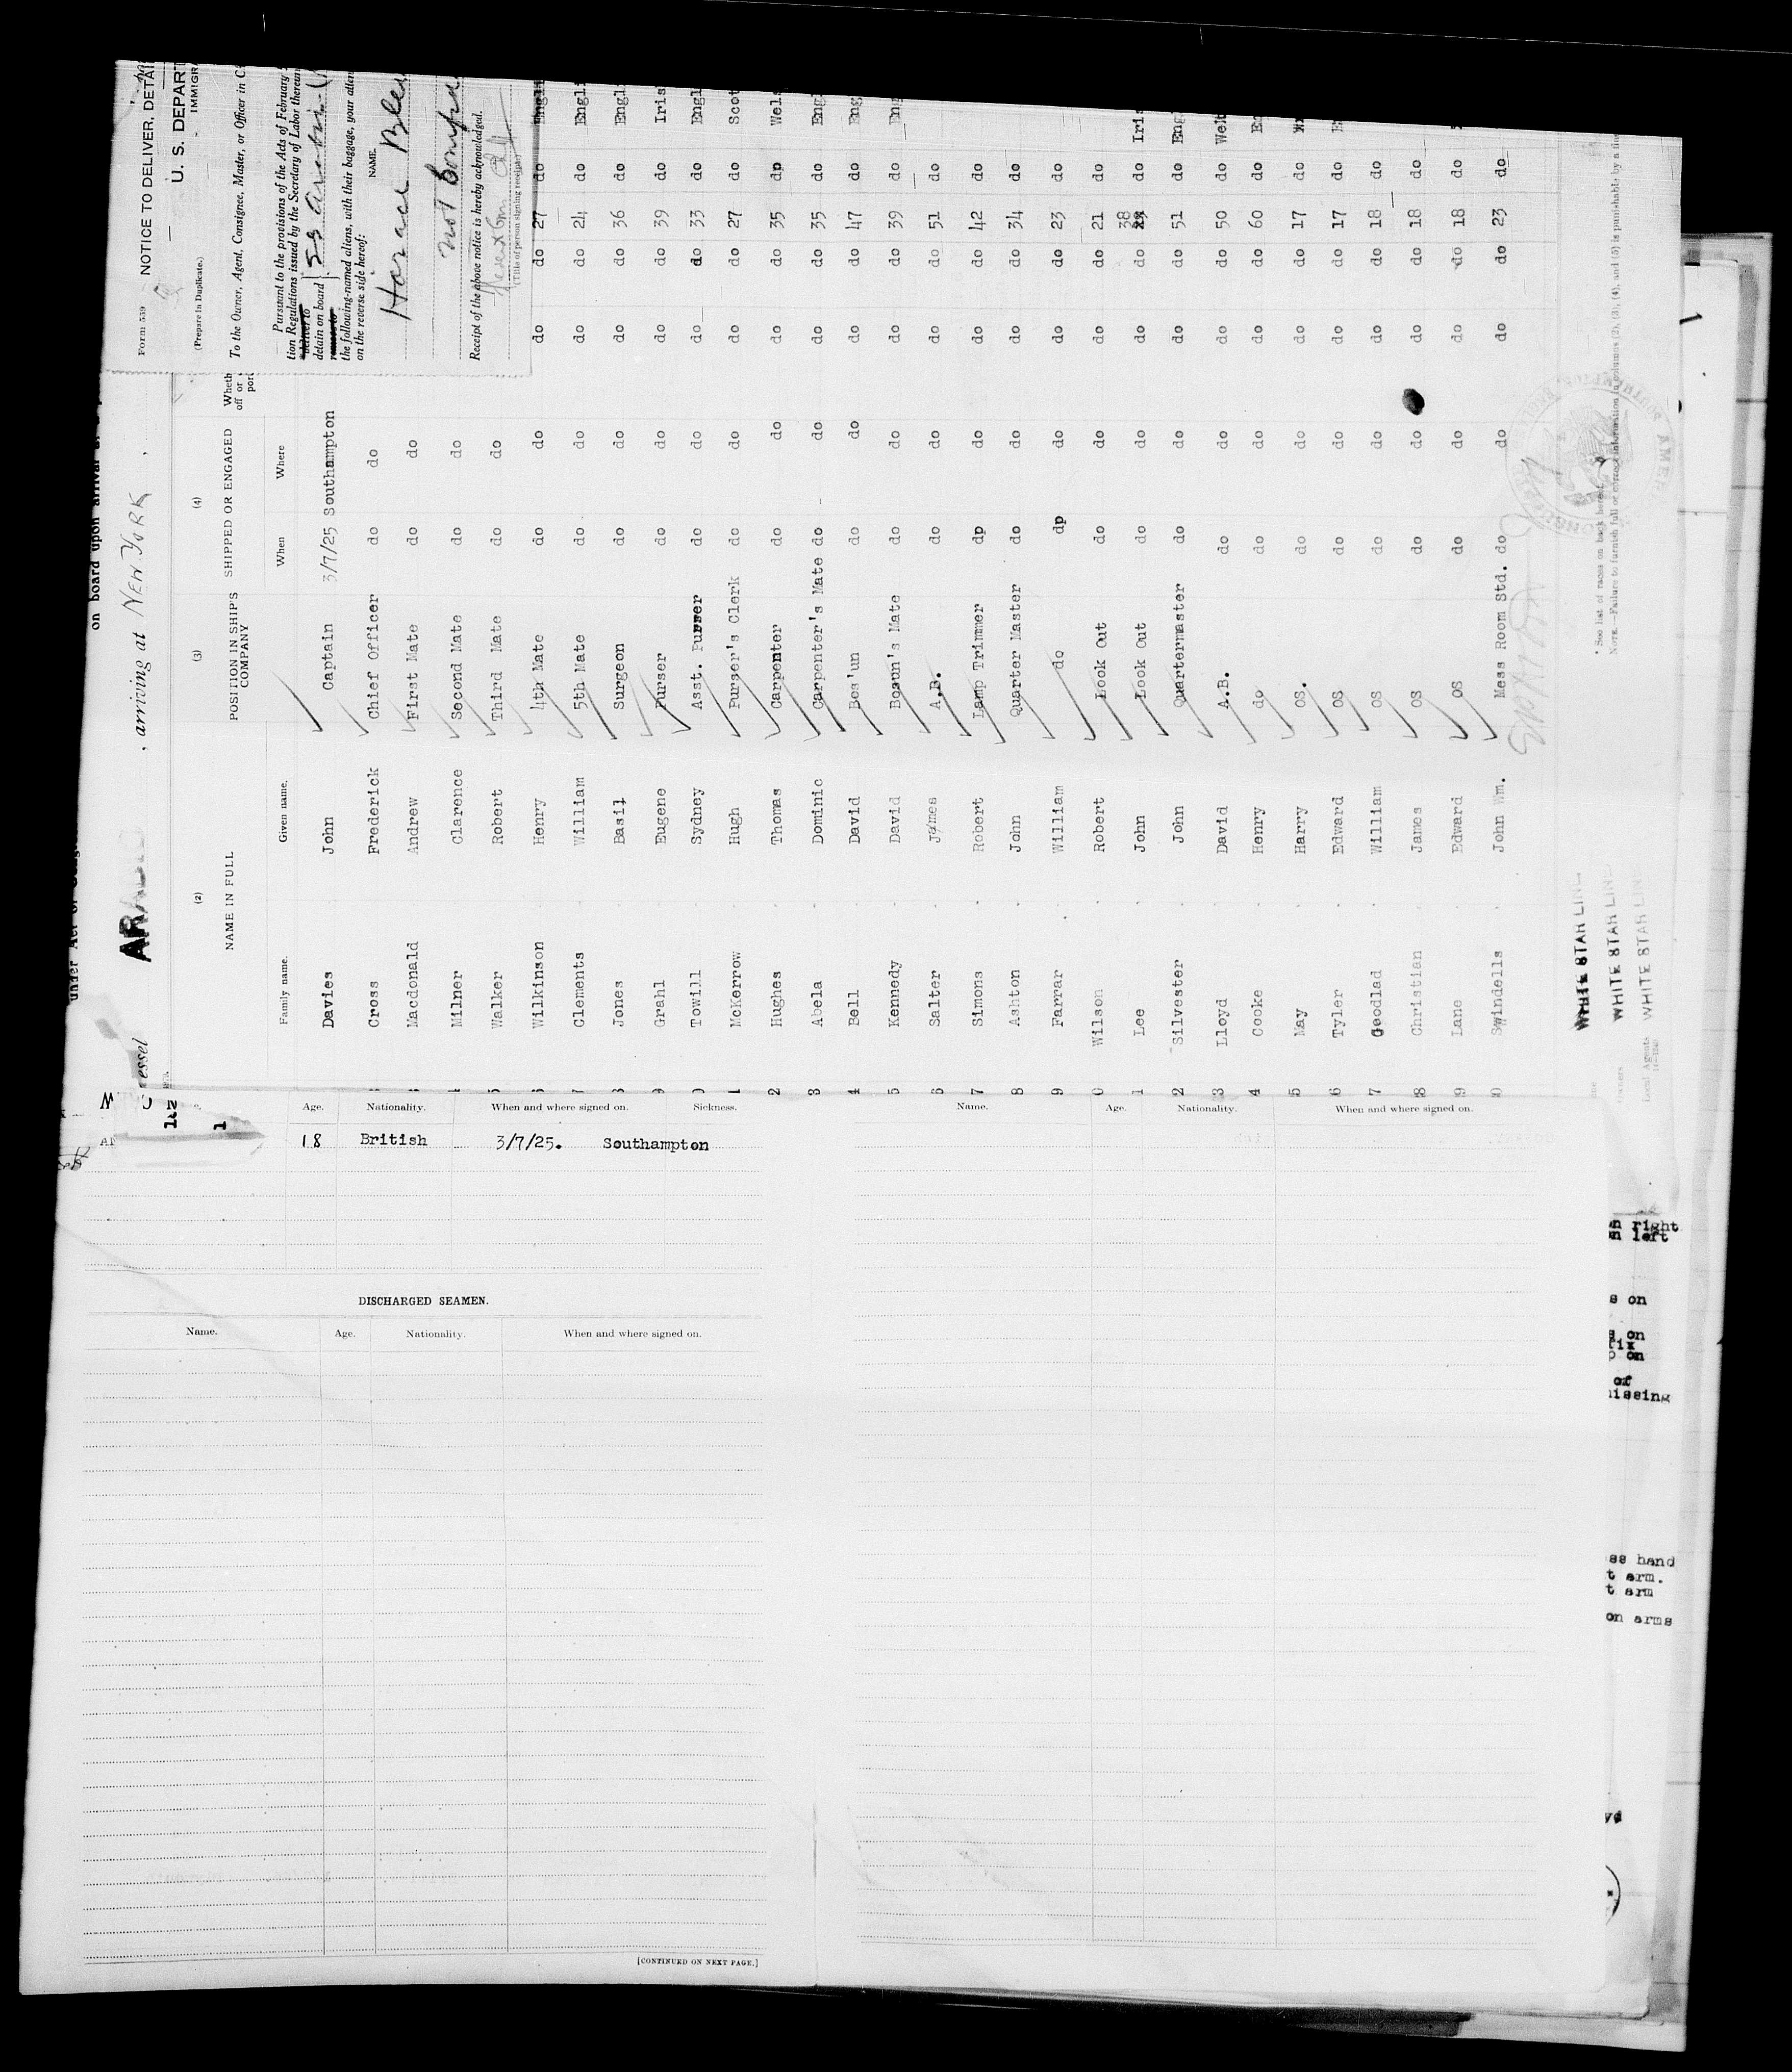 Form 539 NOTICE TO DELIVER, DETAI
U. S. DEPART
(Prepare in Duplicate.) IMMIGRA
To the Owner, Agent, Consignee, Master, or Officer in C
Pursuant to the provisions of the Acts of February
tion Regulations issued by the Secretary of Labor thereun
deliver to
detain on board SS Arabic
remove to
the following-named aliens, with their baggage, your atten
on the reverse side hereof:
NAME.
Horace
not
Receipt of the above notice is hereby acknowledged.
(Title of person signing receipt.)
on board upon arrival
under Act of
essel ARABIC , arriving at NEW YORK ,
(2) (3) (4)
NAME IN FULL POSITION IN SHIP'S COMPANY SHIPPED OR ENGAGED Wheth
off or
port
Family name. Given name. When Where
Davies John Captain 3/7/25 Southampton
Cross Frederick Chief Officer do do
Macdonald Andrew First Mate do do
Milner Clarence Second Mate do do
Walker Robert Third Mate do do
6 Wilkinson Henry 4th Mate do do do do 27 do Engli
7 Clements William 5th Mate do do do do 24 do Engli
8 Jones Basil Surgeon do do do do 36 do Engl
9 Grahl Eugene Purser do do do do 39 do Iris
0 Towill Sydney Asst. Purser do do do do 33 do Engl
1 McKerrow Hugh Purser's Clerk do do do do 27 do Scot
2 Hughes Thomas Carpenter do do do do 35 dp Wels
3 Abela Dominic Carpenter's Mate do do do do 35 do Engl
4 Bell David Bos'un do do do do 47 do Eng
5 Kennedy David Bosun's Mate do do do do 39 do Eng
6 Salter James A.B. do do do do 51 do
7 Simons Robert Lamp Trimmer dp do do do 42 do
8 Ashton John Quarter Master do do do do 34 do
9 Farrar William do dp do do do 23 do
0 Wilson Robert Look Out do do do do 21 do
1 Lee John Look Out do do do do 38 do Iris
2 Silvester John Quartermaster do do do do 51 do Eng
3 Lloyd David A.B. do do do do 50 do Wel
4 Cooke Henry do do do do do 60 do
5 May Harry OS. do do do do 17 do
6 Tyler Edward OS do do do do 17 do
7 Goodlad William OS do do do do 18 do
8 Christian James OS do do do 18 do
9 Lane Edward OS do do do do 18 do
0 Swindells John Wm. Mess Room Std. do do do do 23 do
* See list of races on back hereof.
NOTE.—Failure to furnish full or correct information in columns (2), (3), (4), and (5) is punishable by a fine
WHITE STAR LINE
WHITE STAR LINE
Local Agents WHITE STAR LINE
Age. Nationality. When and where signed on. Sickness. Name. Age. Nationality. When and where signed on.
18 British 3/7/25. Southampton
DISCHARGED SEAMEN.
Name. Age. Nationality. When and where signed on.
[CONTINUED ON NEXT PAGE.]
on right
on left
s on
s on
fix
p on
of
missing
ss hand
t arm.
t arm
on arms
yd